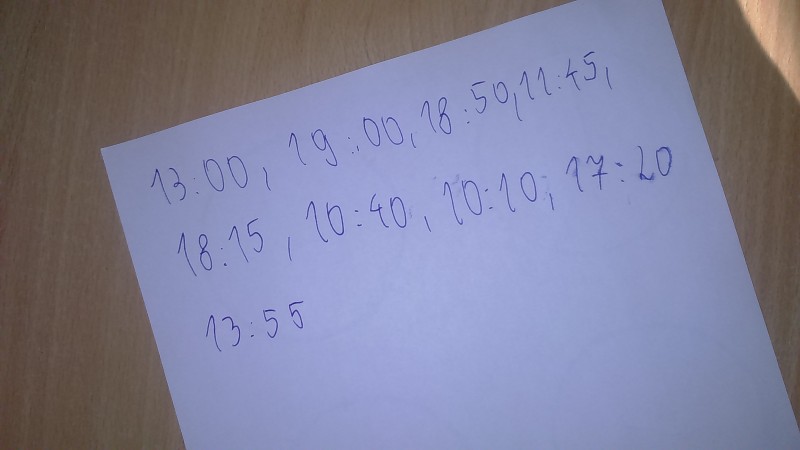 13:00, 19:00, 18:50, 11:45,
18:15, 10:40, 10:10, 17:20
13:55